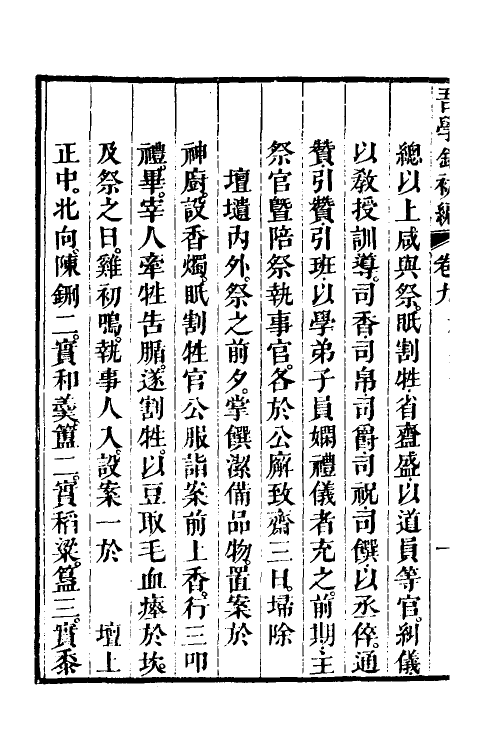 吾學錄初編 卷九
總以上咸與祭眂割牲省齍盛以道員等官糾儀
以敎授訓導司香司帛司爵司祝司饌以丞倅通
贊引贊引班以學弟子員嫺禮儀者充之前期主
祭官曁陪祭執事官各於公廨致齋三日埽除
壇壝內外祭之前夕掌饌潔備品物置案於
神廚設香燭眂割牲官公服詣案前上香行三叩
禮畢宰人牽牲吿腯遂割牲以豆取毛血瘞於坎
及祭之日雞初鳴執事人入設案一於 壇上
正中北向陳鉶二實和羹簠二實稻粱簋二實黍